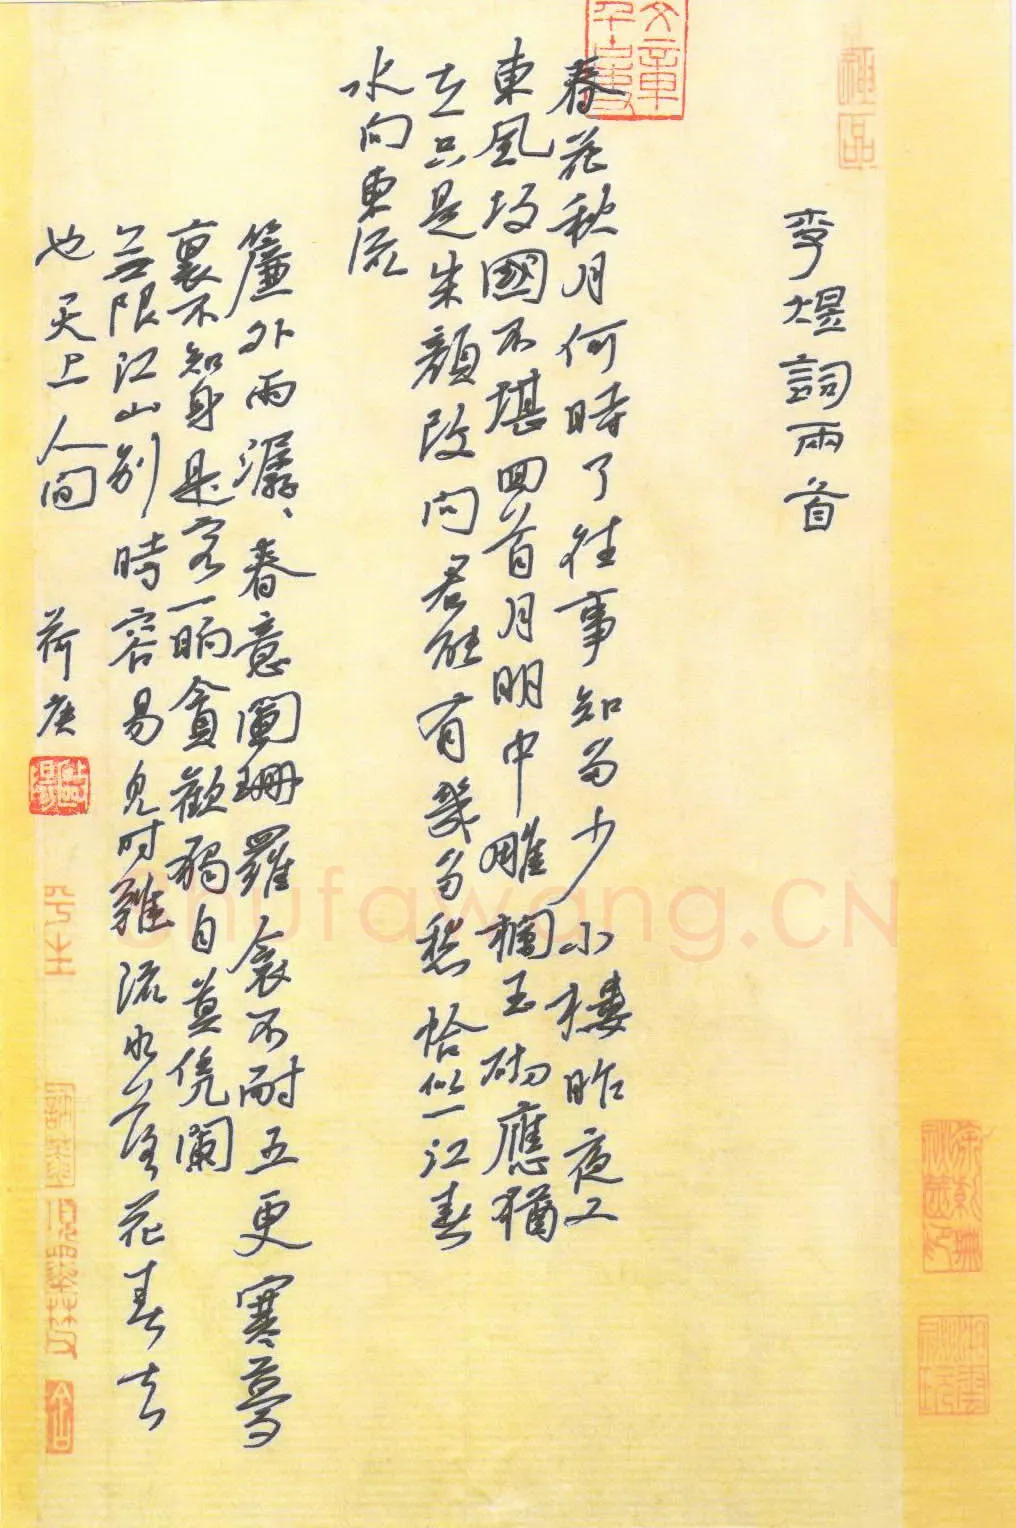 李煜詞兩首
文章千古事
春花秋月何時了往事知多少小樓昨夜又
東風故國不堪回首月明中雕欄玉砌應猶
在只是朱顏改问君能有幾多愁恰似一江春
水向東流
簾外雨潺、春意闌珊羅衾不耐五更寒夢
裏不知身是客一晌貪歡獨自莫凭闌
无限江山别時容易見时難流水落花春去
也天上人间
Shufawang.CN